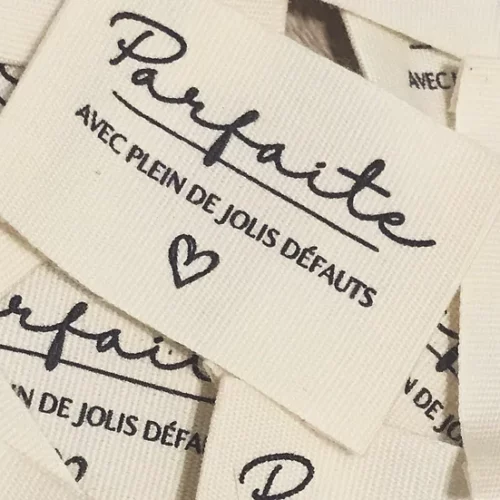 Parfaite
AVEC PLEIN DE JOLIS DÉFAUTS
AVEC
rfait
N DE JOLIS DÉFA
N DE JO
P